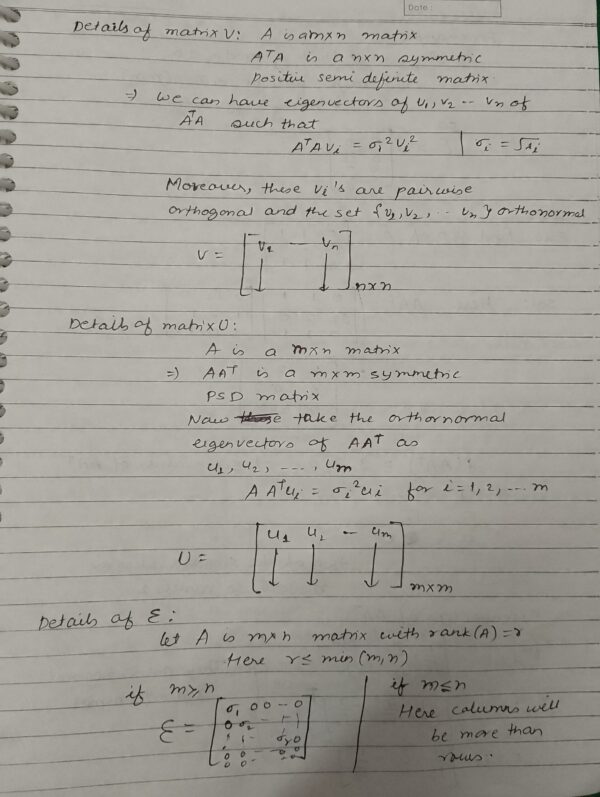 Date :
Details of matrix V: A is a mxn matrix
AᵀA is a nxn symmetric
Positive semi definite matrix
⇒ we can have eigenvectors of v₁, v₂ -- vₙ of
AᵀA such that
AᵀA vᵢ = σᵢ² vᵢ² | σᵢ = √λᵢ
Moreover, these vᵢ's are pairwise
orthogonal and the set {v₁, v₂, .. vₙ} orthonormal
V = [v₁ --- vₙ] nxn
Details of matrix U:
A is a mxn matrix
⇒ AAᵀ is a mxm symmetric
PSD matrix
Now take the orthornormal
eigenvectors of AAᵀ as
u₁, u₂, ---, uₘ
A Aᵀuᵢ = σᵢ² uᵢ for i=1, 2, --- m
U = [u₁ u₂ -- uₘ] mxm
Details of Ɛ:
let A is mxn matrix with rank(A)=r
Here r ≤ min (m, n)
if m ≥ n
Ɛ =
σ₁ 0 0 -- 0
0 σ₂ - - ı ı
σᵣ 0
0 0 - - 0 0
if m ≤ n
Here columns will
be more than
rows.